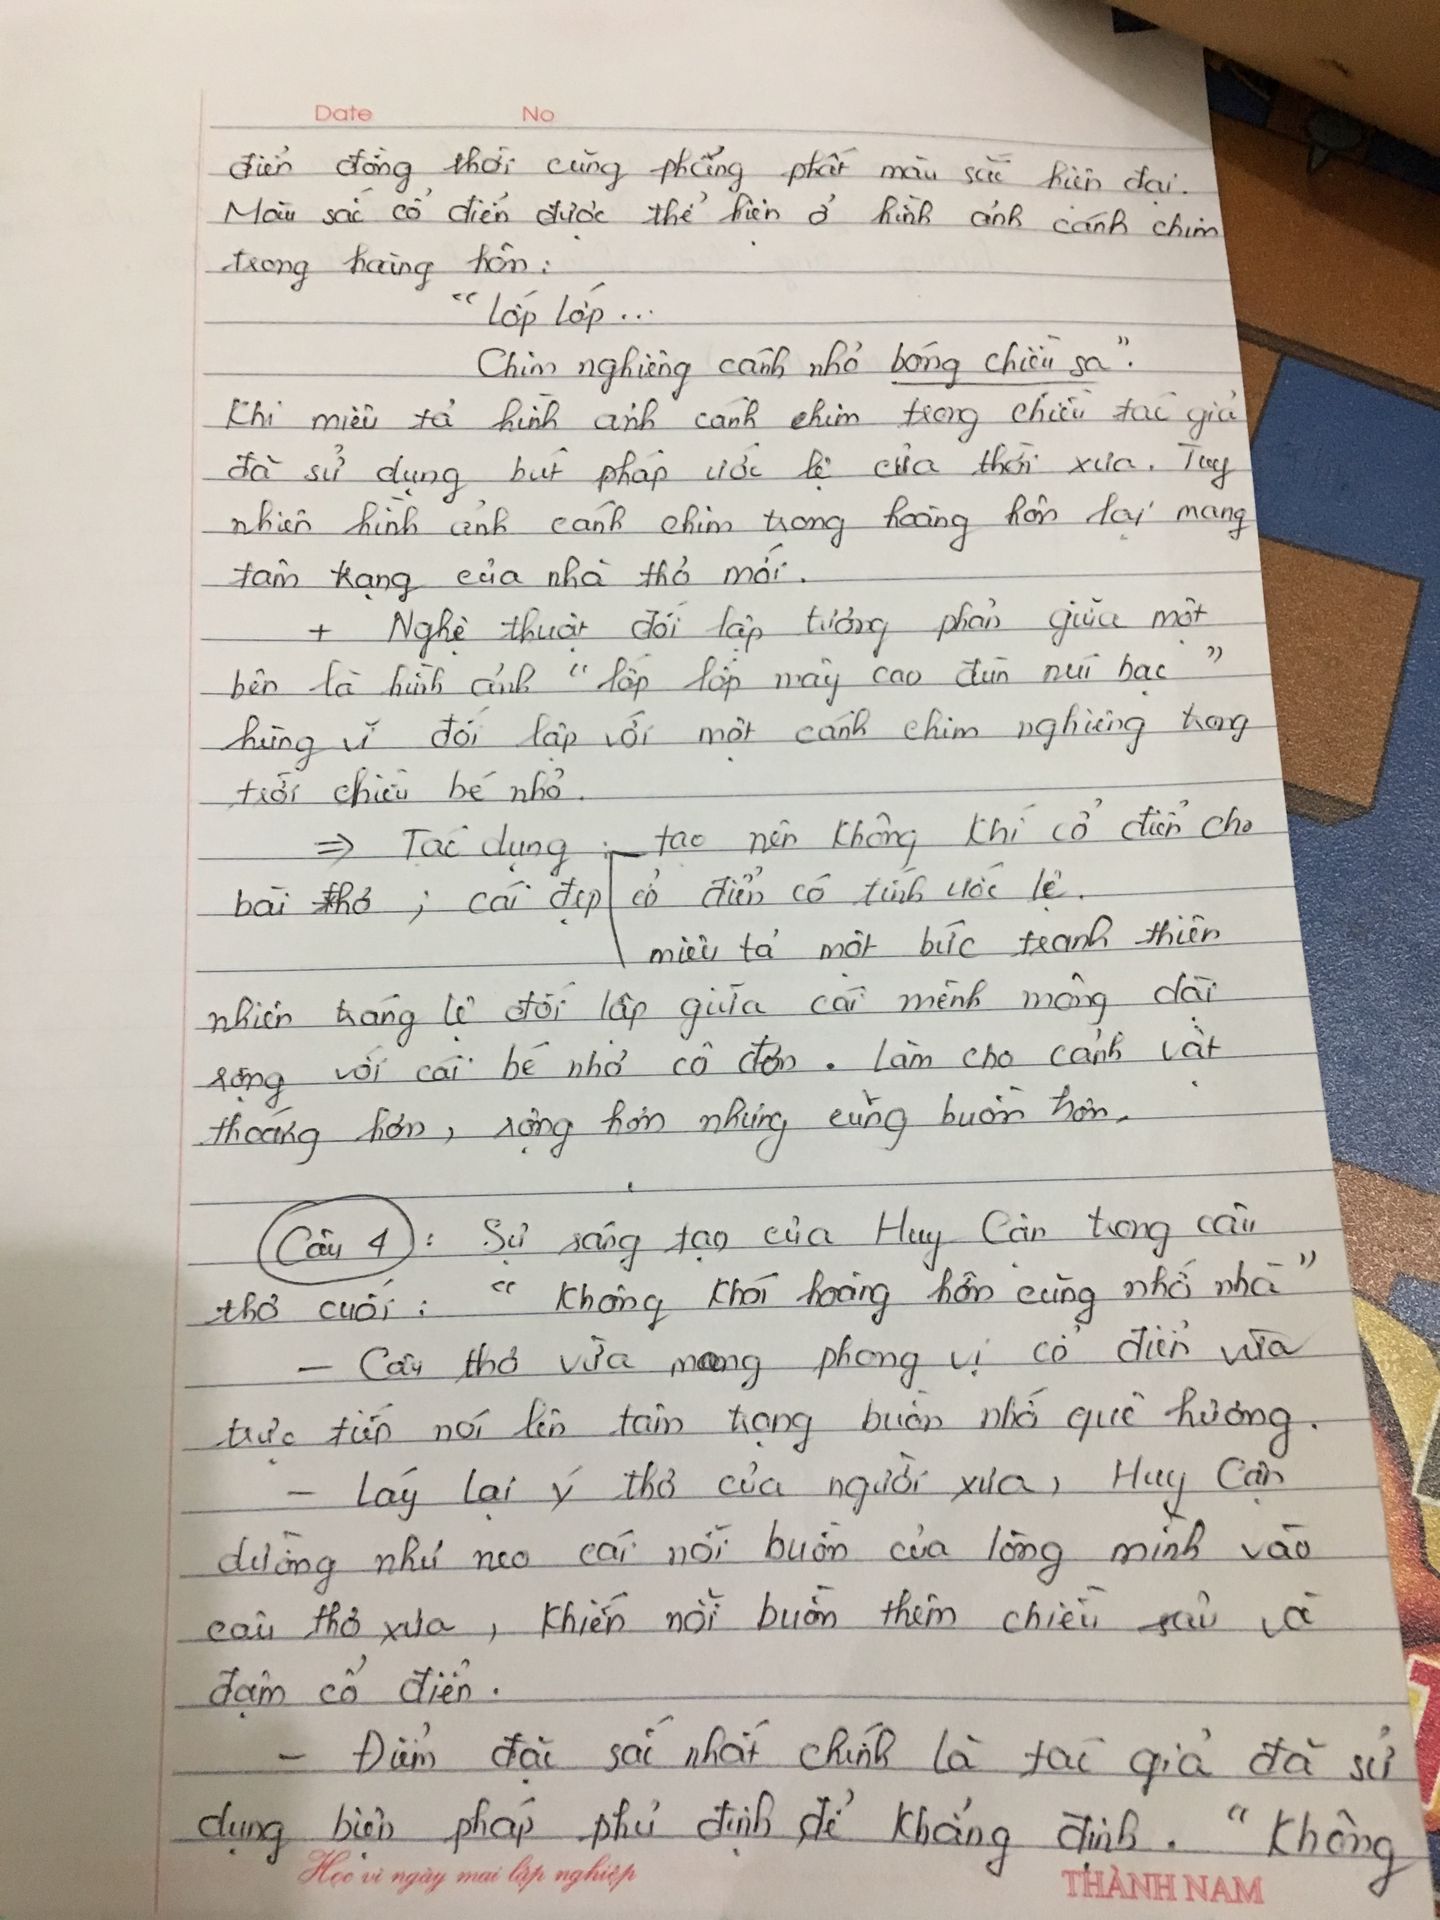 Date No
điển đồng thời cũng phảng phất màu sắc hiện đại.
Màu sắc cổ điển được thể hiện ở hình ảnh cánh chim
trong hoàng hôn:
“Lớp lớp...
Chim nghiêng cánh nhỏ bóng chiều sa”.
Khi miêu tả hình ảnh cánh chim trong chiều tác giả
đã sử dụng bút pháp ước lệ của thời xưa. Tuy
nhiên hình ảnh cánh chim trong hoàng hôn lại mang
tâm trạng của nhà thơ mới.
+ Nghệ thuật đối lập tương phản giữa một
bên là hình ảnh “lớp lớp mây cao đùn núi bạc”
hùng vĩ đối lập với một cánh chim nghiêng trong
trời chiều bé nhỏ.
⇒ Tác dụng : tạo nên không khí cổ điển cho
bài thơ ; cái đẹp cổ điển có tính ước lệ.
miêu tả một bức tranh thiên
nhiên tráng lệ đối lập giữa cái mênh mông dài
rộng với cái bé nhỏ cô đơn. Làm cho cảnh vật
thoáng hơn, rộng hơn nhưng cũng buồn hơn.
Câu 4 : Sự sáng tạo của Huy Cận trong câu
thơ cuối : “Không khói hoàng hôn cũng nhớ nhà”
- Câu thơ vừa mang phong vị cổ điển vừa
trực tiếp nói lên tâm trạng buồn nhớ quê hương.
- Lấy lại ý thơ của người xưa, Huy Cận
dường như neo cái nỗi buồn của lòng mình vào
câu thơ xưa, khiến nỗi buồn thêm chiều sâu và
đậm cổ điển.
- Điểm đặc sắc nhất chính là tác giả đã sử
dụng biện pháp phủ định để khẳng định. “Không
Học vì ngày mai lập nghiệp THÀNH NAM